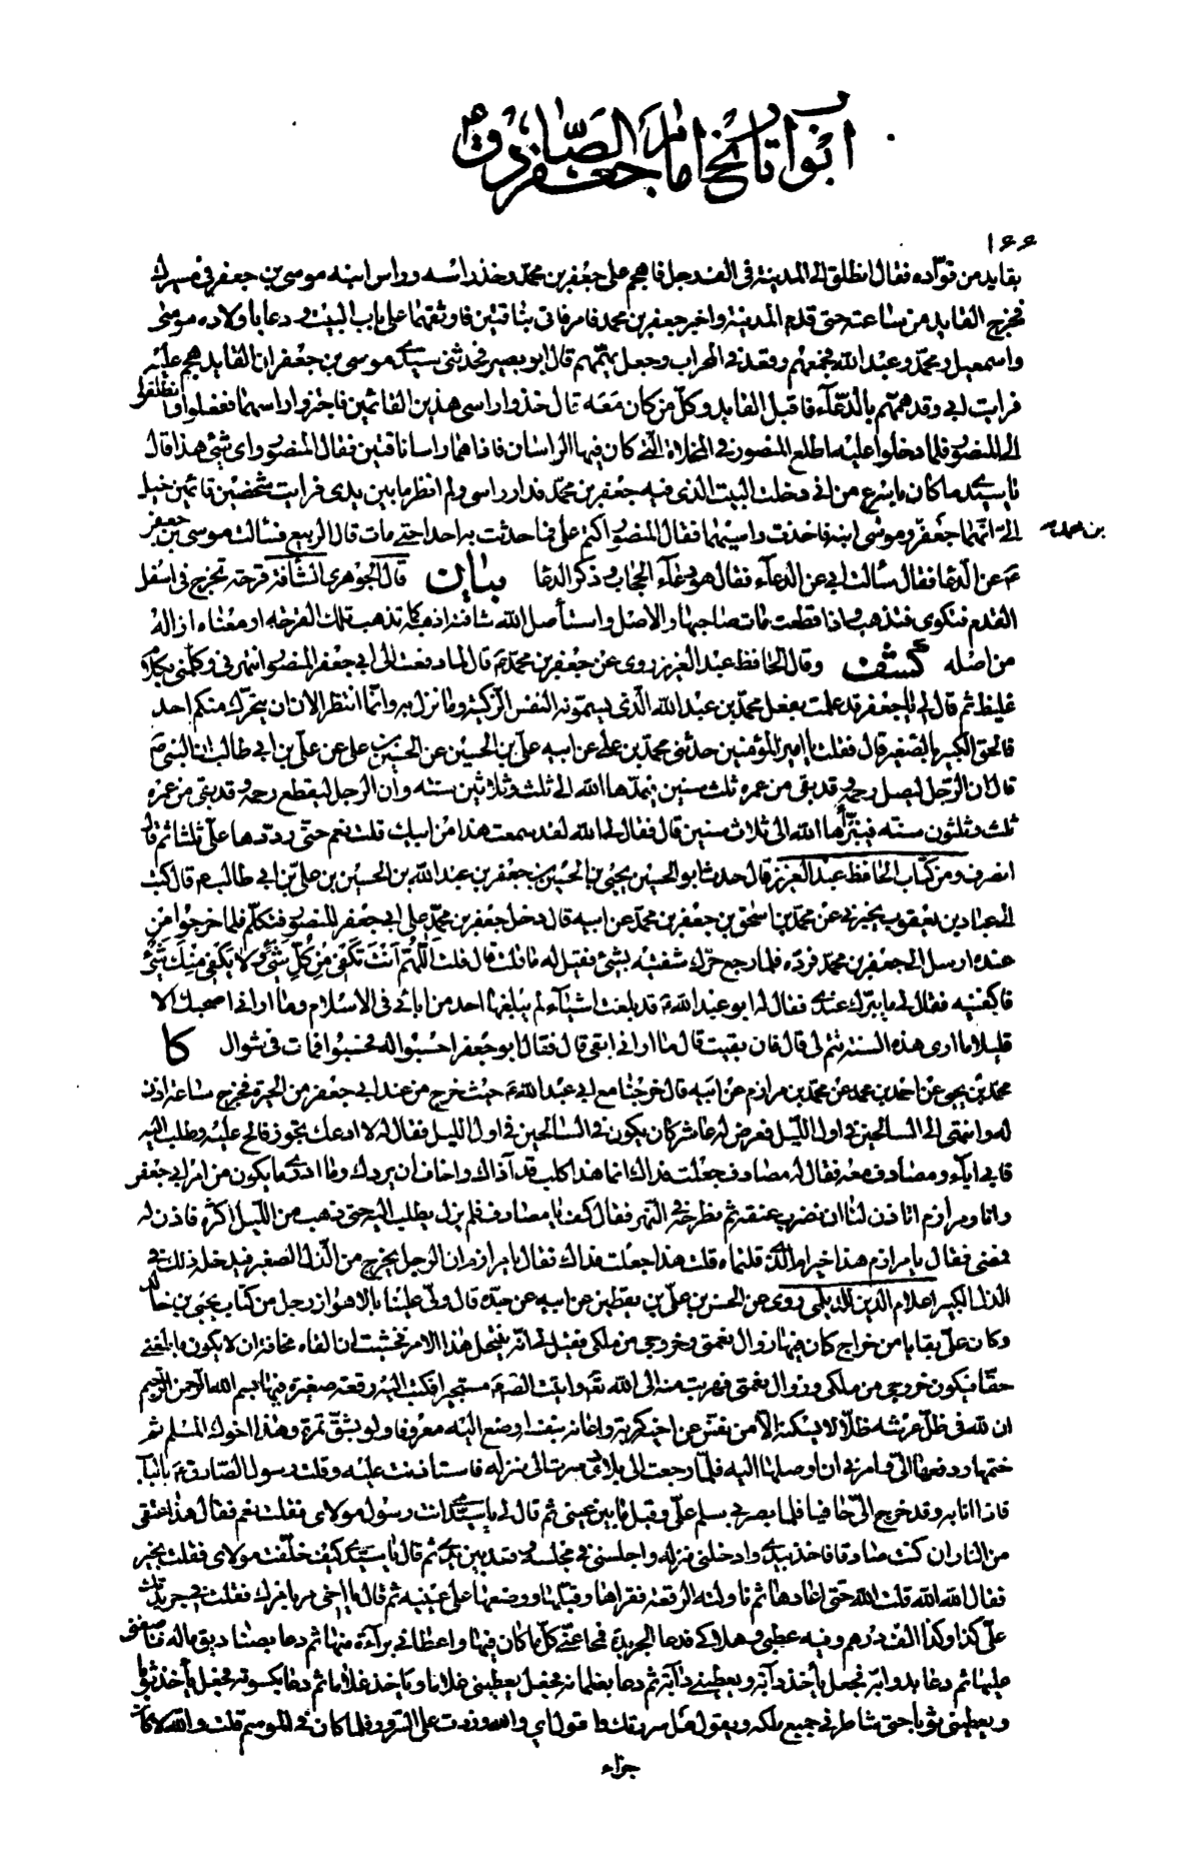 ابواب تاريخ امام جعفر الصادق
١٦٦
بقايد من قواده فقال انطلق الى المدينة فى الف رجل فاهجم على جعفر بن محمد وخذ رأسه ورأس ابنه موسى بن جعفر فى مسيرك
فخرج القايد من ساعته حتى قدم المدينة واخبر جعفر بن محمد فامر فاتى بناقتين فاوثقهما على باب البيت ودعا باولاده موسى
واسمعيل ومحمد وعبد الله فجمعهم وقعد فى المحراب وجعل يهمهم قال ابو بصير فحدثنى سيدى موسى بن جعفر ان القايد هجم عليه
فرايت ابى وقد همهم بالدعآء فاقبل القايد وكل من كان معه قال خذوا راسى هذين القائمين فاجتزوا راسهما ففعلوا وانطلقوا
الى المنصور فلما دخلوا عليه اطلع المنصور فى المخلاة التى كان فيها الراسان فاذا هما راسا ناقتين فقال المنصور واى شئ هذا قال
يا سيدى ما كان باسرع من انى دخلت البيت الذى فيه جعفر بن محمد فدار راسى ولم انظر ما بين يدى فرايت شخصين قائمين خيل
الى انهما جعفر وموسى ابنه فاخذت راسيهما فقال المنصور اكتم على فما حدثت به احدا حتى مات قال الربيع فسالت موسى بن جعفر
بن محمد
ع عن الدعا فقال سالت ابى عن الدعآء فقال هو دعآء الحجاب وذكر الدعا بيان قال الجوهرى الشأفة قرحة تخرج فى اسفل
القدم فتكوى فتذهب واذا قطعت مات صاحبها والاصل واستأصل الله شافته اذهبه كما تذهب تلك القرحة او معناه ازاله
من اصله كشف وقال الحافظ عبد العزيز روى عن جعفر بن محمد ع قال لما دفعت الى ابى جعفر المنصور انتهرنى وكلمنى بكلام
غليظ ثم قال لى يا جعفر قد علمت بفعل محمد بن عبد الله الذى يسمونه النفس الزكية وما نزل به وانما انتظر الان ان يتحرك منكم احد
فالحق الكبير بالصغير قال فقلت يا امير المؤمنين حدثنى محمد بن على عن ابيه على بن الحسين عن الحسين بن على عن على بن ابى طالب ان النبى ص
قال ان الرجل ليصل رحمه وقد بقى من عمره ثلث سنين فيمدها الله الى ثلث وثلاثين سنة وان الرجل ليقطع رحمه وقد بقى من عمره
ثلث وثلثون سنة فيبترها الله الى ثلاث سنين قال فقال لى الله لقد سمعت هذا من ابيك قلت نعم حتى رددها على ثلثا ثم قال
انصرف ومن كتاب الحافظ عبد العزيز قال حدث ابو الحسين يحيى بن الحسين بن جعفر بن عبد الله بن الحسين بن على بن ابى طالب ع قال كتب
الى عباد بن يعقوب يخبرنى عن محمد بن اسحق بن جعفر بن محمد عن ابيه قال دخل جعفر بن محمد على ابى جعفر المنصور فتكلم فلما خرجوا من
عنده ارسل الى جعفر بن محمد فرده فلما رجع حرك شفتيه بشئ فقيل له ما قلت قال قلت اللهم انت تكفى من كل شئ ولا يكفى منك شئ
فاكفنيه فقال لى ما يبرك عندى فقال له ابو عبد الله ع قد بلغت اشيآء لم يبلغها احد من ابائى فى الاسلام وما ارانى اصحبك الا
قليلا ما ارى هذه السنة تتم لى قال فان بقيت قال ما ارانى ابقى قال فقال ابو جعفر احسبوا له فحسبوا فمات فى شوال كا
محمد بن يحيى عن احمد بن محمد عن محمد بن مرازم عن ابيه قال خرجنا مع ابى عبد الله ع حيث خرج من عند ابى جعفر من الحيرة فخرج ساعة اذن
له وانتهى الى السالحين فى اول الليل فعرض له عاشر كان يكون فى السالحين فى اول الليل فقال له لا ادعك تجوز فالح عليه وطلب اليه
فابى ابآء ومصادف معه فقال له مصادف جعلت فداك انما هذا كلب قد آذاك واخاف ان يردك وما ادرى ما يكون من امر ابى جعفر
وانا ومرازم اتاذن لنا ان نضرب عنقه ثم نطرحه فى النهر فقال كف يا مصادف فلم يزل يطلب اليه حتى ذهب من الليل اكثره فاذن له
فمضى فقال يا مرازم هذا خير ام الذى قلتماه قلت هذا جعلت فداك فقال يا مرازم ان الرجل يخرج من الذل الصغير فيدخله ذلك فى
الذل الكبير اعلام الدين للديلمى روى عن الحسن بن على بن يقطين عن ابيه عن جده قال ولى علينا بالاهواز رجل من كتاب يحيى بن خالد
وكان على بقايا من خراج كان فيها زوال نعمتى وخروجى من ملكى فقيل لى انه ينتحل هذا الامر فخشيت ان القاه مخافة ان لا يكون ما بلغنى
حقا فيكون خروجى من ملكى وزوال نعمتى فهربت منه الى الله تعه واتيت الصادق ع مستجيرا فكتب اليه رقعة صغيرة فيها بسم الله الرحمن الرحيم
ان لله فى ظل عرشه ظلالا لا يسكنه الا من نفس عن اخيه كربة واعانه بنفسه او صنع اليه معروفا ولو بشق تمرة وهذا اخوك المسلم ثم
ختمها ودفعها الى وامرنى ان اوصلها اليه فلما رجعت الى بلادى صرت الى منزله فاستاذنت عليه وقلت رسول الصادق ع بالباب
فاذا انا به وقد خرج الى حافيا فلما بصر بى سلم على وقبل ما بين عينى ثم قال لى يا سيدى انت رسول مولاى فقلت نعم فقال هذا عتقى
من النار ان كنت صادقا فاخذ بيدى وادخلنى منزله واجلسنى فى مجلسه وقعد بين يدى ثم قال يا سيدى كيف خلفت مولاى فقلت بخير
فقال الله الله قلت الله حتى اعادها ثم ناولته الرقعة فقراها وقبلها ووضعها على عينيه ثم قال يا اخى مر بامرك فقلت فى جريدتك
على كذا وكذا الف درهم وفيه عطبى وهلاكى فدعا الجريدة فمحا عنى كل ما كان فيها واعطانى برآءة منها ثم دعا بصناديق ماله فناصفنى
عليها ثم دعا بدوابه فجعل ياخذ دآبة ويعطينى دآبة ثم دعا بغلمانه فجعل يعطينى غلاما وياخذ غلاما ثم دعا بكسوته فجعل ياخذ ثوبا
ويعطينى ثوبا حتى شاطرنى جميع ملكه ويقول هل سررتك واقول اى والله وزدت على السرور فلما كان فى الموسم قلت والله لا كان
جزاء